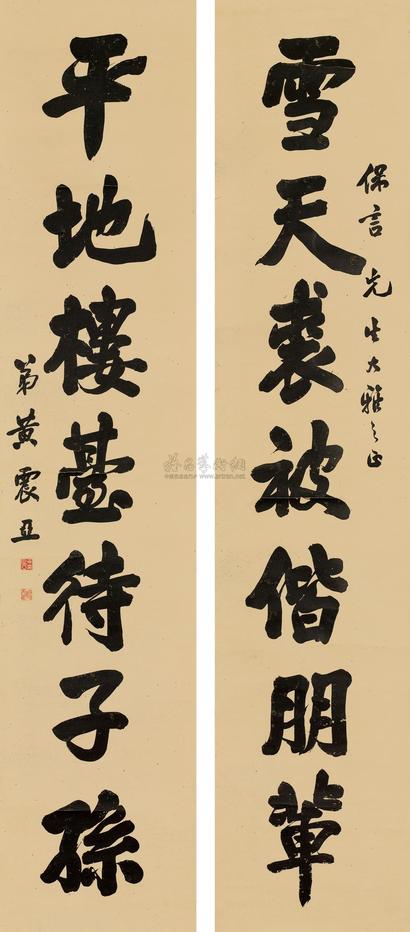 保言先生大雅之正
雪天裘被偕朋輩
平地樓臺待子孫
弟黃震亞